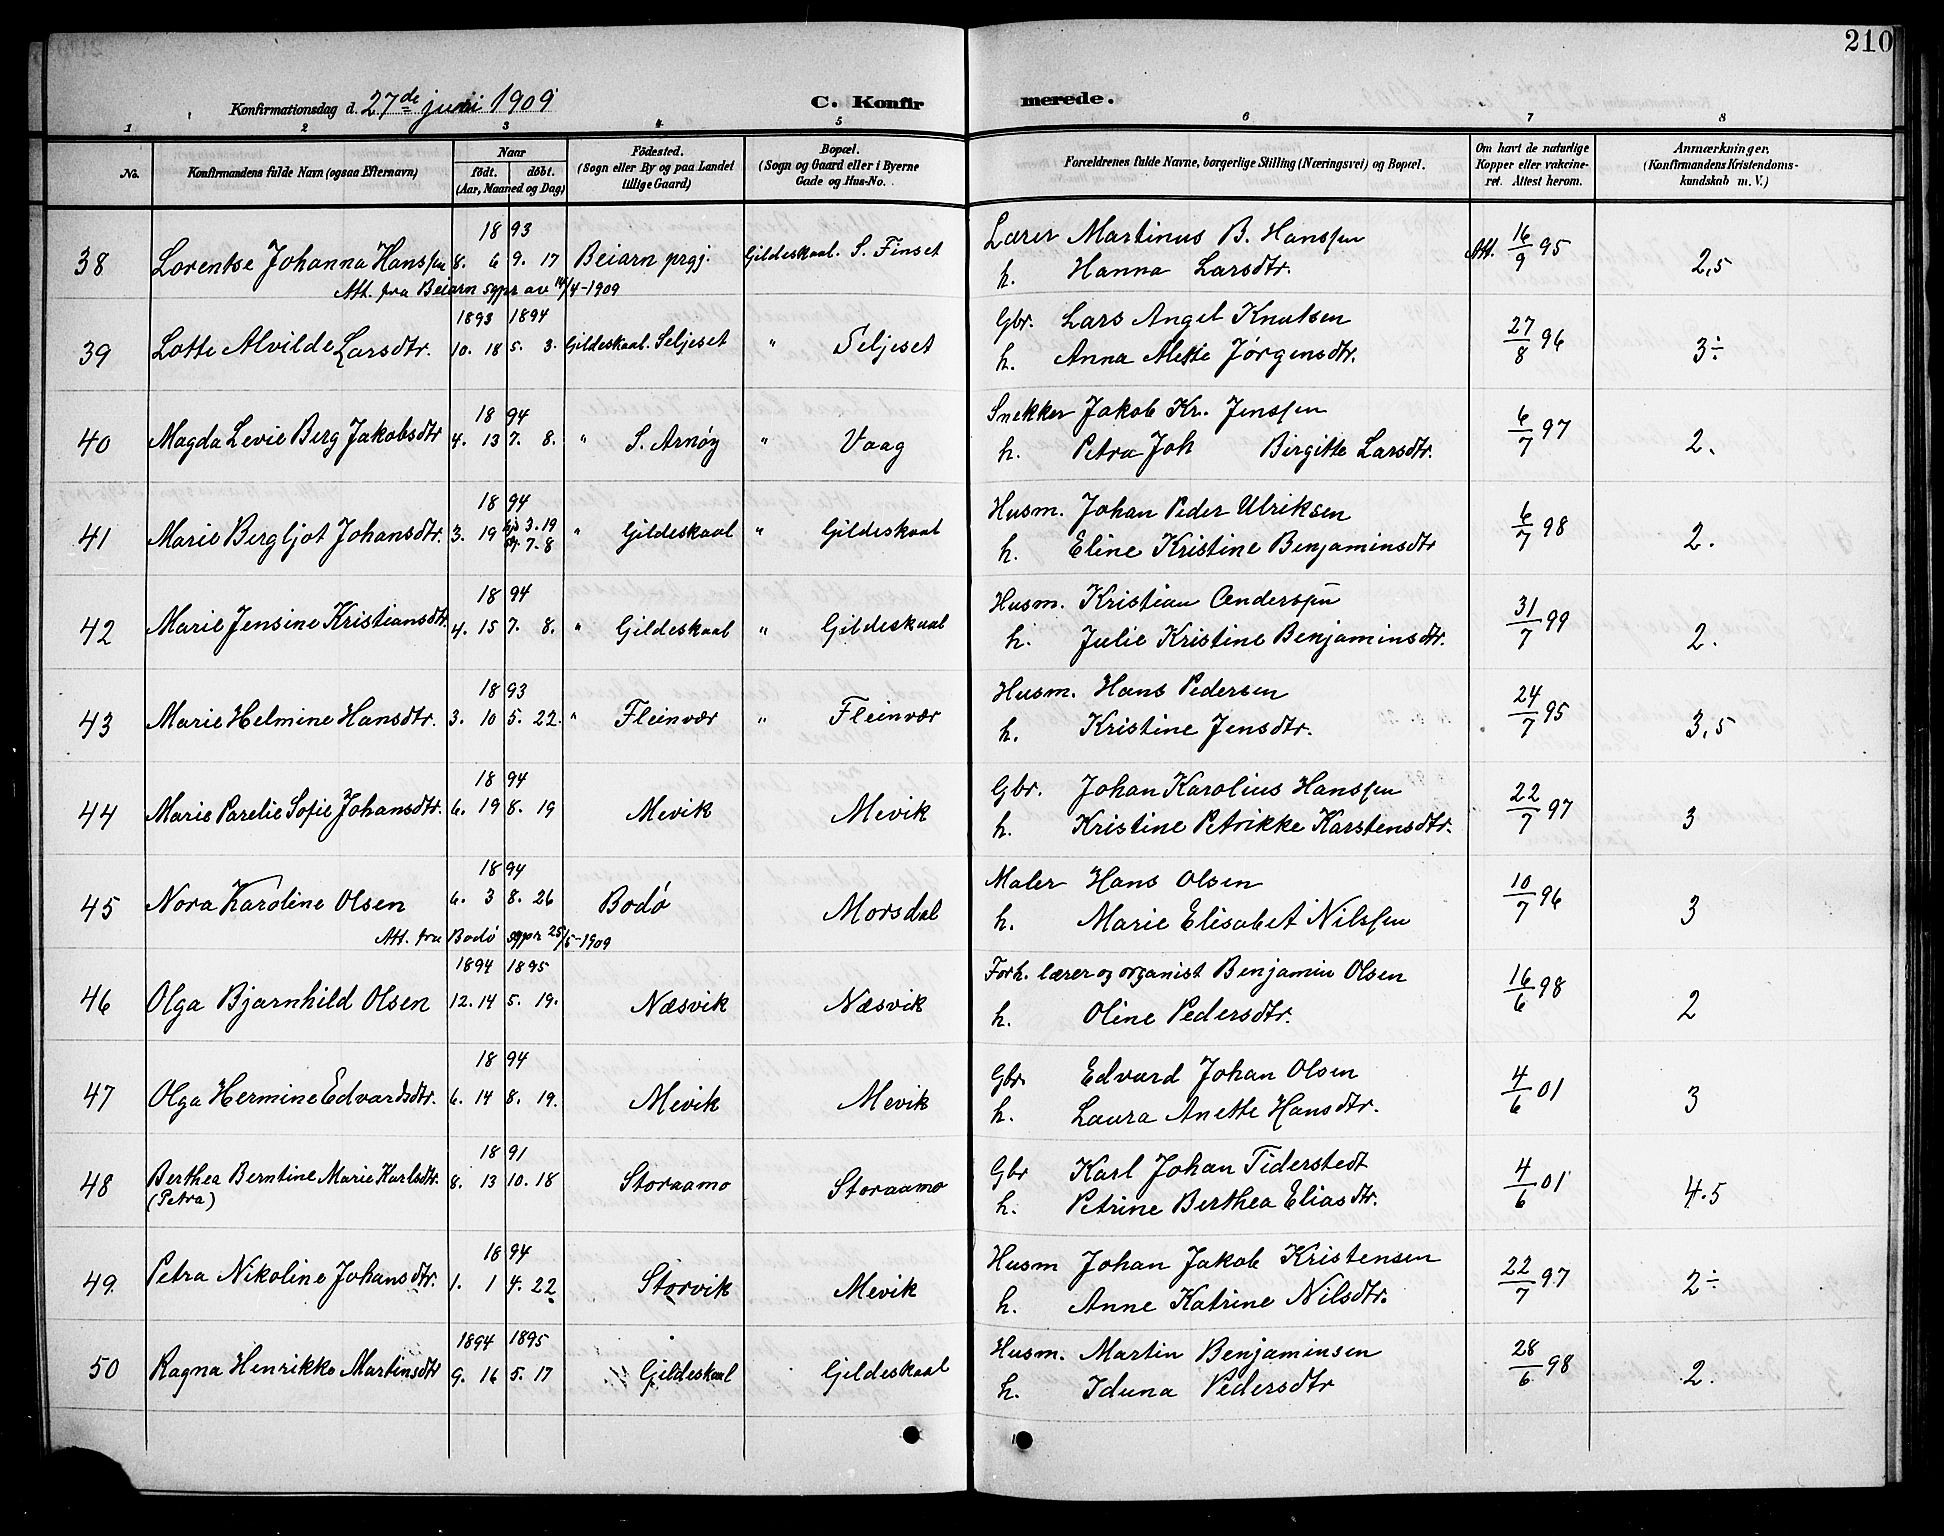 210
Konfirmationsdag d. 27de juni 1909
C. Konfirmerede.
1 2 3 4 5 6 7 8
No. Konfirmandens fulde Navn (ogsaa Efternavn) Naar födt. döbt. (Aar, Maaned og Dag) Födested. (Sogn eller By og paa Landet tillige Gaard) Bopæl. (Sogn og Gaard eller i Byerne Gade og Hus-No. Forældrenes fulde Navne, borgerlige Stilling (Næringsvei) og Bopæl. Om havt de naturlige Kopper eller vakcineret. Attest herom. Anmærkninger. (Konfirmandens Kristendomskundskab m. V.)
1893
38 Lorentse Johanna Hanssen 8. 6 9. 17 Beiarn prgj. Gildeskaal. S. Finset Lærer Martinus B. Hanssen Att. 16/9 95 2,5
h. Hanna Larsdtr.
Att. fra Beiarn sgpr av 14/4-1909
1893 1894
39 Lotte Alvilde Larsdtr. 10. 18 5. 3. Gildeskaal. Seljeset " Seljeset Gbr. Lars Angel Knutsen 27/8 96 3÷
h. Anna Mette Jørgensdtr.
1894
40 Magda Levie Berg Jakobsdtr 4. 13 7. 8. " S. Arnøy " Vaag Snekker Jakob Kr. Jenssen 6/7 97 2.
h. Petra Joh Birgitte Larsdtr.
1894
41 Marie Bergljot Johansdtr. 3. 19 3.19 7-8 " Gildeskaal " Gildeskaal Husm. Johan Peder Ulriksen 6/7 98 2.
h. Eline Kristine Benjaminsdtr
1894
42 Marie Jensine Kristiansdtr 4. 15 7. 8. " Gildeskaal " Gildeskaal Husm. Kristian Anderssen 31/7 99 2.
h. Julie Kristine Benjaminsdtr.
1893
43 Marie Helmine Hansdtr. 3. 10 5. 22. " Fleinvær " Fleinvær Husm. Hans Pedersen 24/7 95 3,5
h. Kristine Jensdtr.
1894
44 Marie Parelie Sofie Johansdtr. 6. 19 8. 19 Mevik Mevik Gbr. Johan Karolius Hanssen 22/7 97 3
h. Kristine Petrikke Karstensdtr.
1894
45 Nora Karoline Olsen 6. 3 8. 26 Bodø Morsdal Maler Hans Olsen 10/7 96 3
h. Marie Elisabet Nilssen
Att. fra Bodø sgpr 25/5-1909
1894 1895
46 Olga Bjarnhild Olsen 12. 14 5. 19. Næsvik Næsvik Forh. lærer og organist Benjamin Olsen 16/6 98 2
h. Oline Pedersdtr.
1894
47 Olga Hermine Edvardsdtr. 6. 14 8. 19. Mevik Mevik Gbr. Edvard Johan Olsen 4/6 01 3
h. Laura Anette Hansdtr.
1891
48 Berthea Berntine Marie Karlsdtr. 8. 13 10. 18 Storaamo Storaamo Gbr Karl Johan Tiderstedt 4/6 01 4.5
(Petra) h. Petrine Berthea Eliasdtr.
1894
49. Petra Nikoline Johansdtr. 1. 1 4. 22 Storvik Mevik Husm Johan Jakob Kristensen 22/7 97 2÷
h. Anne Katrine Nilsdtr.
1894 1895
50 Ragna Henrikke Martinsdtr 9. 16 5. 17 Gildeskaal Gildeskaal Husm. Martin Benjaminsen 28/6 98 2.
h. Iduna Pedersdtr